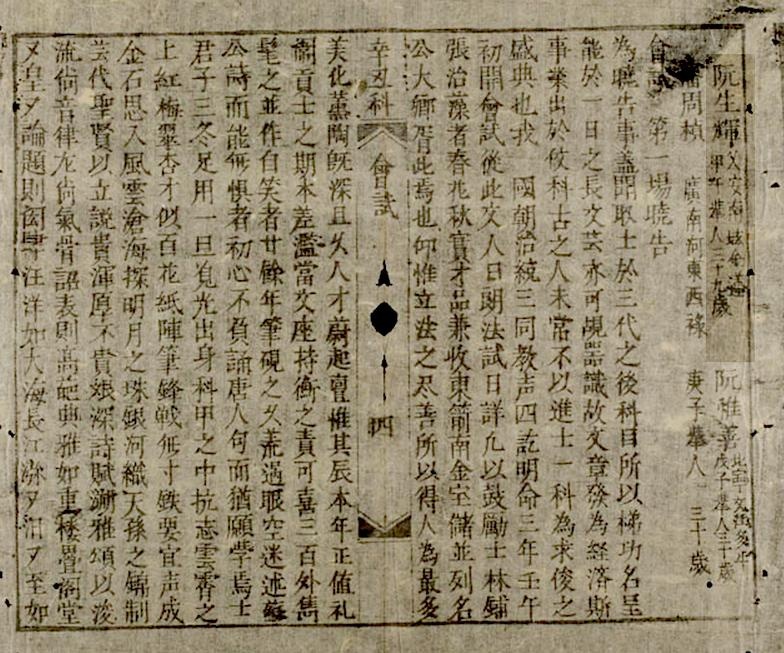 阮生輝 乂安南 甲午舉人二十九歲 阮惟善 戊子舉人三十歲
潘周楨 廣南河東西祿 庚子舉人 三十歲
會試 第一場曉告
為曉告事蓋聞取士於三代之後科目所以梯功名呈
能於一日之長文芸亦可覘器識故文章發為経済斯
事業出於仗科古之人未常不以進士一科為求俊之
盛典也我 國朝治統三同教声四訖明命三年壬午
初開會試從此文人日朗法試日詳凢以鼓勵士林鋪
張治藻者春花秋實才品兼收東箭南金宝儲並列名
公大卿胥此焉也仰惟立法之尽善所以得人為最多
辛丑科 會試 四
美化薰陶既深且久人才蔚起亶惟其辰本年正值礼
闈貢士之期本差濫當文座持衡之責可喜三百外雋
髦之並作自笑者廿餘年筆硯之久荒過眼空迷述蘇
公詩而能無惧者初心不負誦唐人句而猶願學焉士
君子三冬足用一旦覓光出身科甲之中抗志雲霄之
上紅梅翠杏才似百花紙陣筆鋒戦無寸鉄要宜声成
金石思入風雲滄海探明月之珠銀河織天孫之錦制
芸代聖賢以立説貴渾厚不貴艱深詩賦溯雅頌以浚
流尚音律尤尚氣骨詔表則高葩典雅如重楼疊閣堂
〻皇〻論題則閎汪洋如大海長江瀰〻汨〻至如